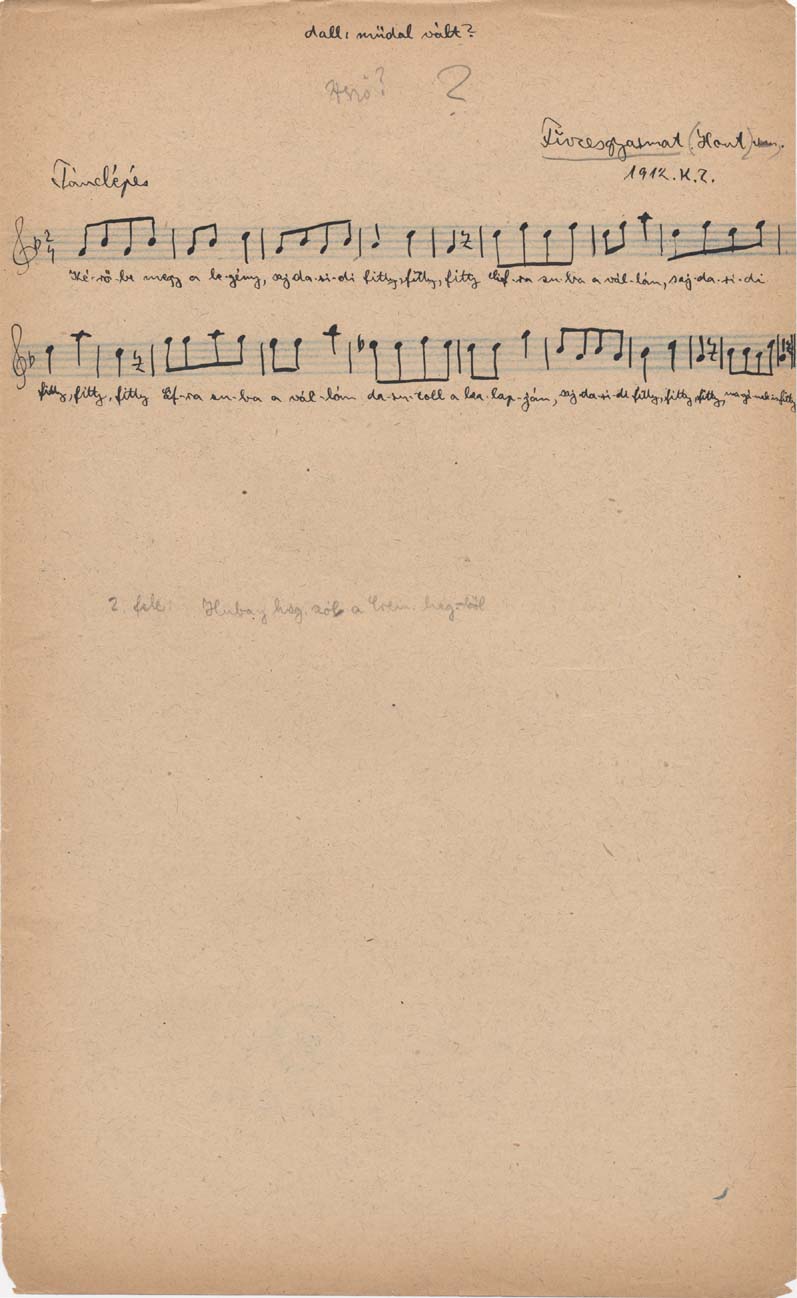 dall: műdal vált?
?
Füvesgyarmat (Hont)
1912. K. Z.
Tánclépés
2/4
Ké-rő-be megy a le-gény, saj-da-ri-di fitty, fitty, fitty Cif-ra su-ba a vál-lán, saj-da-ri-di
fitty, fitty, fitty Cif-ra su-ba a vál-lán da-ru-toll a ka-lap-ján, saj-da-ri-di fitty, fitty, fitty,
2. fele: Hubay hsg. szól a